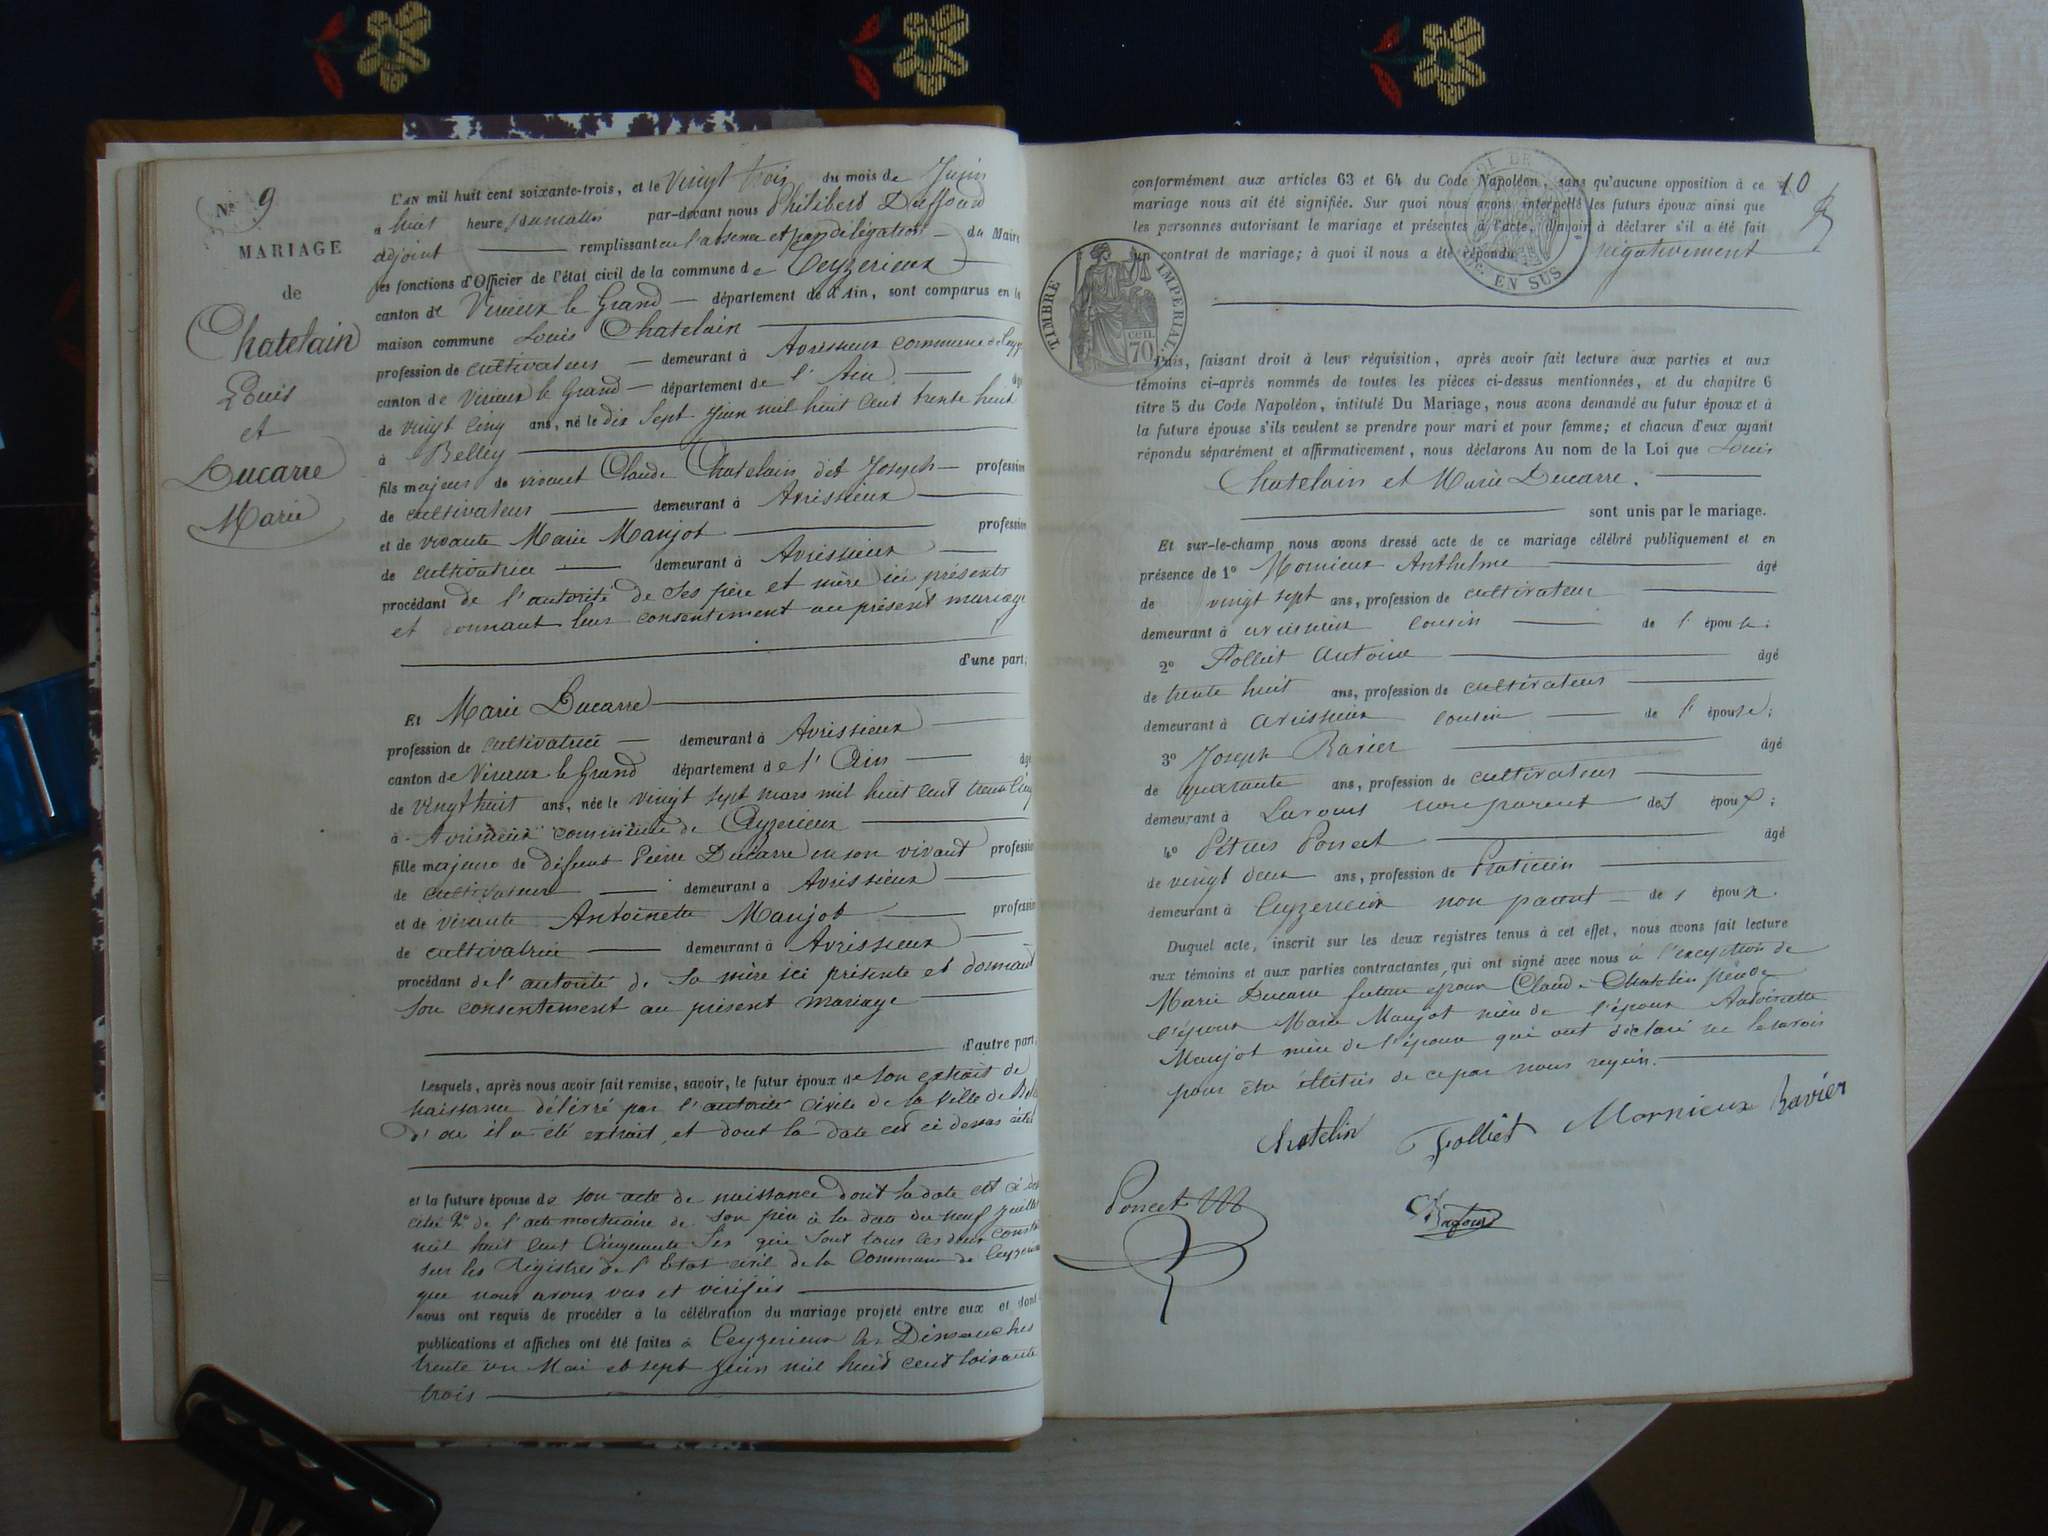 N° 9
MARIAGE
de
Chatelain
Louis
et
Ducarre
Marie
L'AN mil huit cent soixante-trois, et le vingt trois du mois de Juin
à huit heure du matin par-devant nous Philibert Duffourd
adjoint remplissant en l'absence et par délégation du Maire
les fonctions d'Officier de l'état civil de la commune de Ceyzerieux
canton de Virieux le Grand département de l'Ain, sont comparus en la
maison commune Louis Chatelain
profession de cultivateur demeurant à Avrissieux commune de Ceyz
canton de Virieux le Grand département de l'Ain âgé
de vingt cinq ans, né le dix sept Juin mil huit cent trente huit
à Belley
fils majeur de vivant Claude Chatelain dit Joseph profession
de cultivateur demeurant à Avrissieux
et de vivante Marie Maujot profession
de cultivatrice demeurant à Avrissieux
procédant de l'autorité de ses père et mère ici présents
et donnant leur consentement au présent mariage
d'une part;
Et Marie Ducarre
profession de cultivatrice demeurant à Avrissieux
canton de Virieux le Grand département de l'Ain âgé
de vingt huit ans, née le vingt sept mars mil huit cent trente cinq
à Avrissieux commune de Ceyzerieux
fille majeure de défunt Pierre Ducarre en son vivant profession
de cultivateur demeurant à Avrissieux
et de vivante Antoinette Maujot profession
de cultivatrice demeurant à Avrissieux
procédant de l'autorité de sa mère ici présente et donnant
son consentement au présent mariage
d'autre part;
Lesquels, après nous avoir fait remise, savoir, le futur époux de son extrait de
naissance délivré par l'autorité civile de la ville de Bel
d'où il a été extrait, et dont la date est ci dessus citée
et la future épouse de son acte de naissance dont la date est ci des
citée 2° de l'acte mortuaire de son père à la date du neuf Juillet
mil huit cent cinquante six qui sont tous les deux consta
sur les registres de l'Etat civil de la Commune de Ceyzerieux
que nous avons vus et vérifiés
nous ont requis de procéder à la célébration du mariage projeté entre eux et dont
publications et affiches ont été faites à Ceyzerieux les Dimanches
trente un Mai et sept Juin mil huit cent soixante
trois
10
conformément aux articles 63 et 64 du Code Napoléon, sans qu'aucune opposition à ce
mariage nous ait été signifiée. Sur quoi nous avons interpellé les futurs époux ainsi que
les personnes autorisant le mariage et présentes à l'acte, d'avoir à déclarer s'il a été fait
un contrat de mariage; à quoi il nous a été répondu négativement
EN SUS
TIMBRE IMPERIAL
cen. 70
Puis, faisant droit à leur réquisition, après avoir fait lecture aux parties et aux
témoins ci-après nommés de toutes les pièces ci-dessus mentionnées, et du chapitre 6
titre 5 du Code Napoléon, intitulé Du Mariage, nous avons demandé au futur époux et à
la future épouse s'ils veulent se prendre pour mari et pour femme; et chacun d'eux ayant
répondu séparément et affirmativement, nous déclarons Au nom de la Loi que Louis
Chatelain et Marie Ducarre.
sont unis par le mariage.
Et sur-le-champ nous avons dressé acte de ce mariage célébré publiquement et en
présence de 1° Mornieux Anthelme âgé
de vingt sept ans, profession de cultivateur
demeurant à avrissieux cousin de l'époux;
2° Folliet Antoine âgé
de trente huit ans, profession de cultivateur
demeurant à avrissieux cousin de l'épouse;
3° Joseph Ravier âgé
de quarante ans, profession de cultivateur
demeurant à Lavours non parent des époux;
4° Pétrus Poncet âgé
de vingt deux ans, profession de Praticien
demeurant à Ceyzerieux non parent des époux.
Duquel acte, inscrit sur les deux registres tenus à cet effet, nous avons fait lecture
aux témoins et aux parties contractantes, qui ont signé avec nous à l'exception de
Marie Ducarre future épouse Claude Chatelin père de
l'époux Marie Maujot mère de l'époux Antoinette
Maujot mère de l'épouse qui ont déclaré ne le savoir
pour être illitrés de ce par nous requis.
Chatelin Folliet Mornieux Ravier
Poncet